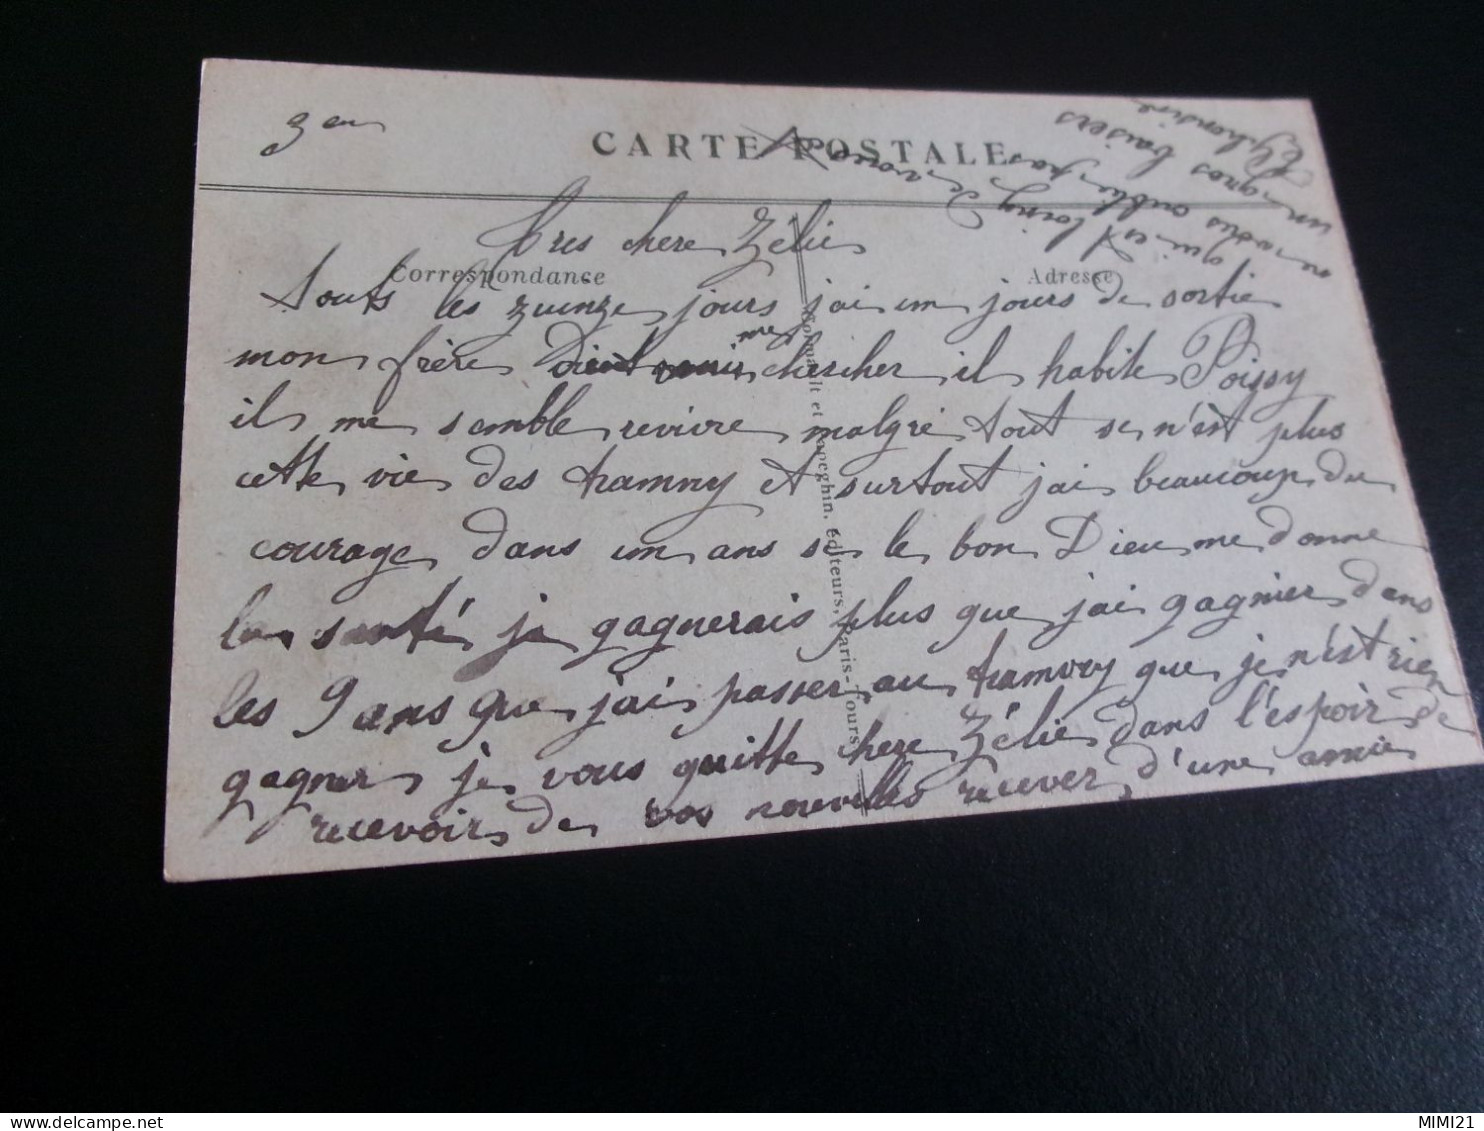 3em
CARTE POSTALE
Tres chere Zelie
Correspondance
Adresse
Touts les zuinze jours jai un jours de sortie
mon frère vient me chercher il habite Poissy
il me semble revivre malgré tout se n'est plus
cette vie des tramvy et surtout jai beaucoup du
courage dans un ans si le bon Dieu me donne
la santé je gagnerais plus que jai gagnier dans
les 9 ans que jai passer au tramvy que je n'est rien
gagner je vous quitte chere Zélie dans l'espoir de
recevoir de vos nouvelles recever d'une amie
qui est loing de vous
ne vous oublie pas
un gros baisers
éditeurs, Paris-Tours
MIMI21